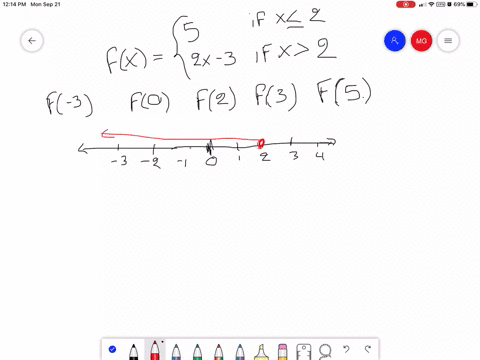 12:14 PM Mon Sep 21
69%
MG
5 if x ≤ 2
F(x) = {
2x-3 if x > 2
F(-3) F(0) F(2) F(3) F(5)
-3 -2 -1 0 1 2 3 4